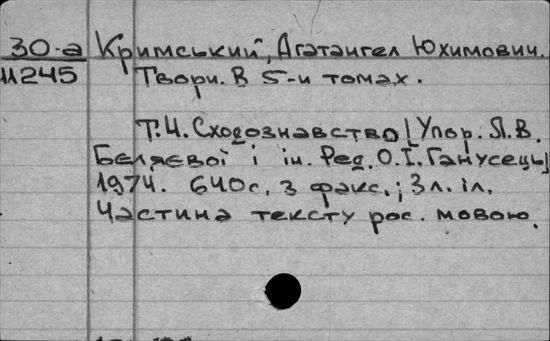 30-а Кримський, Агатангел Юхимович.
И245 Твори. В 5-и томах.
Т.4. Сходознавство [Упор. Л.В.
Бєляєвої і ін. Ред. О.І. Ганусець]
1974. 640с. з факс.; 3 л. іл.
Частина тексту рос. мовою.